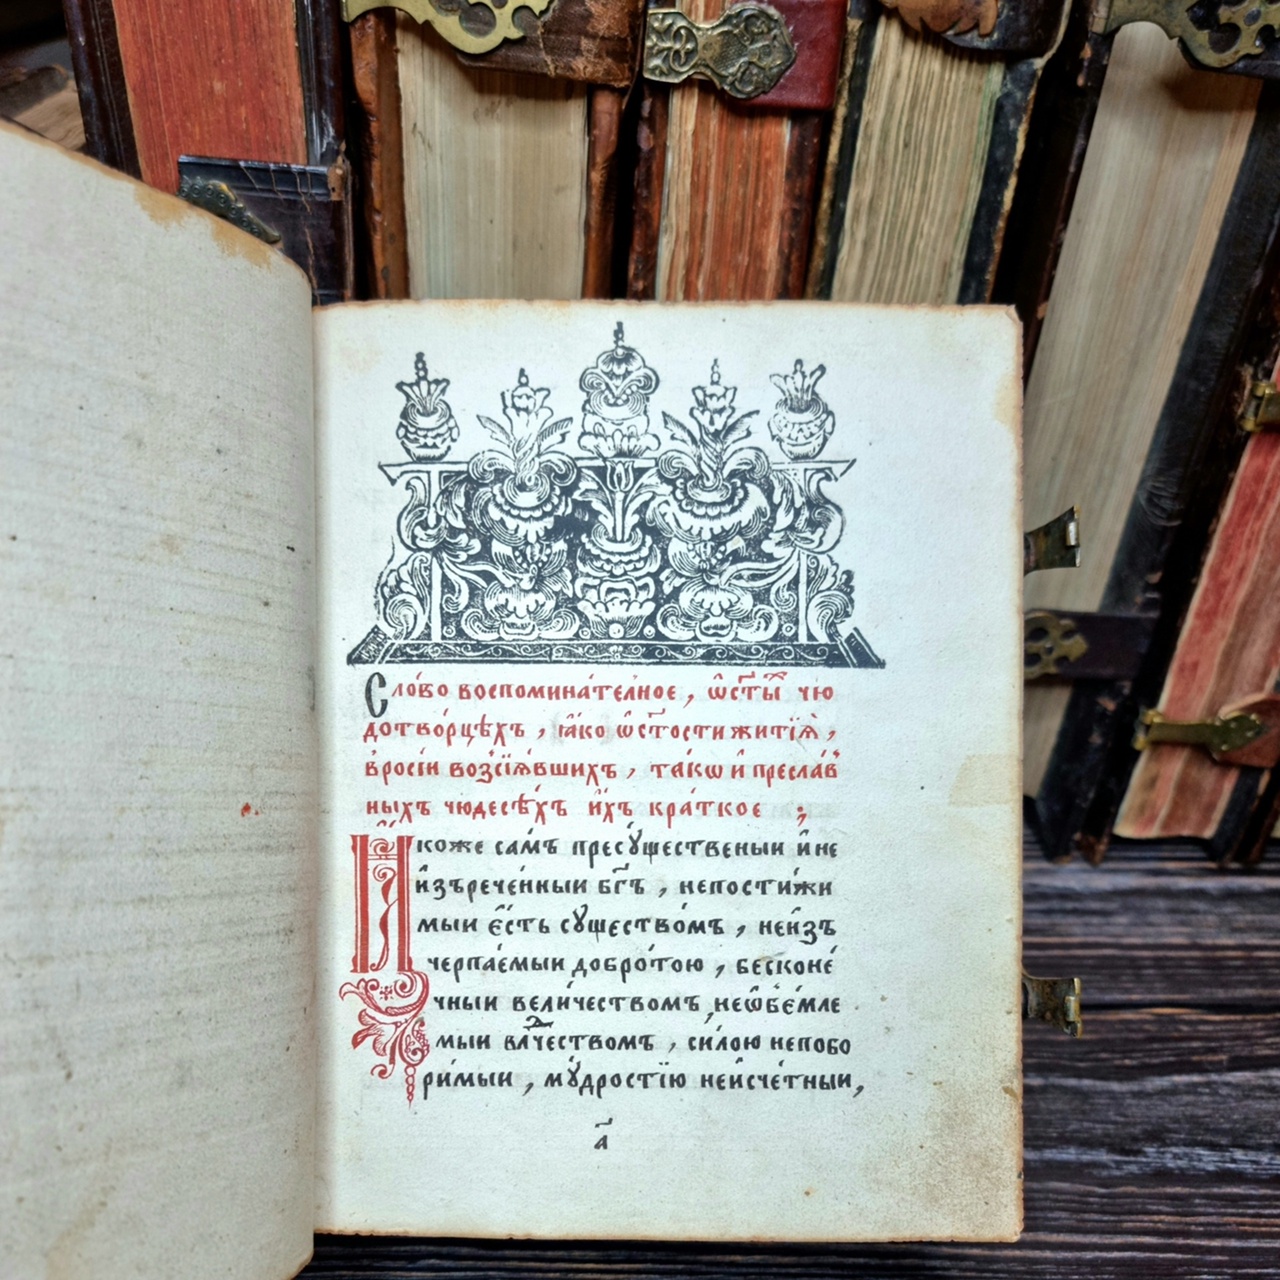 Сло́во воспомина́телное, ѡ҆ст҃ы́х чю
дотво́рцѣхъ, ꙗ҆́ко ѡ҆ст҃ости житїѧ̀,
в̾росі́и возсїѧ́вшихъ, та́кѡ и҆ пресла́в
ныхъ чюдесѣ́хъ и҆́хъ кра́ткое;
И҆́коже са́мъ пресꙋ́щественыи и҆ не
и҆зърече́нныи бг҃ъ, непостижи́
мыи є҆́сть сꙋщество́мъ, неи҆зъ
черпа́емыи добро́тою, бесконе́
чныи вели́чествомъ, неѡ҆бе́мле
мыи влⷣчествомъ, си́лою непобо
ри́мыи, мꙋ́дростїю неи҆сче́тныи,
а҃